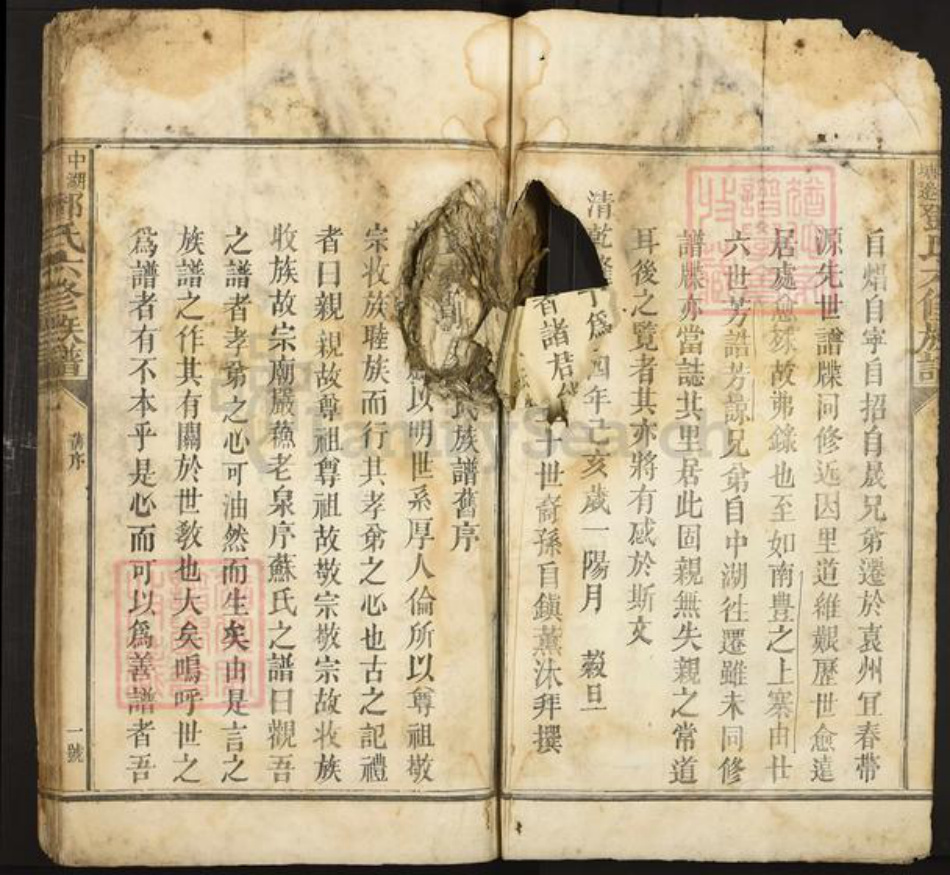 自熠自寧自招自晸兄弟遷於袁州冝春帶
源先世譜牒同修近因里道維艱歷世愈遠
居處愈𣗳故弗錄也至如南豊之上寨由仕
六世芳誥芳諒兄弟自中湖徃遷雖未同修
譜牒亦當誌其里居此固親無失親之常道
耳後之覽者其亦將有感於斯文
清乾 四年己亥歲一陽月 穀旦
二十世裔孫自鎮薰沐拜撰
氏族譜舊序
以明世系厚人倫所以尊祖敬
宗收族睦族而行其孝弟之心也古之記禮
者曰親親故尊祖尊祖故敬宗敬宗故收族
收族故宗廟嚴蘓老泉序蘇氏之譜曰觀吾
之譜者孝弟之心可油然而生矣由是言之
族譜之作其有關於世教也大矣嗚呼世之
爲譜者有不本乎是心而可以爲善譜者吾
中湖鄧氏六修族譜
舊序
一號
FamilySearch